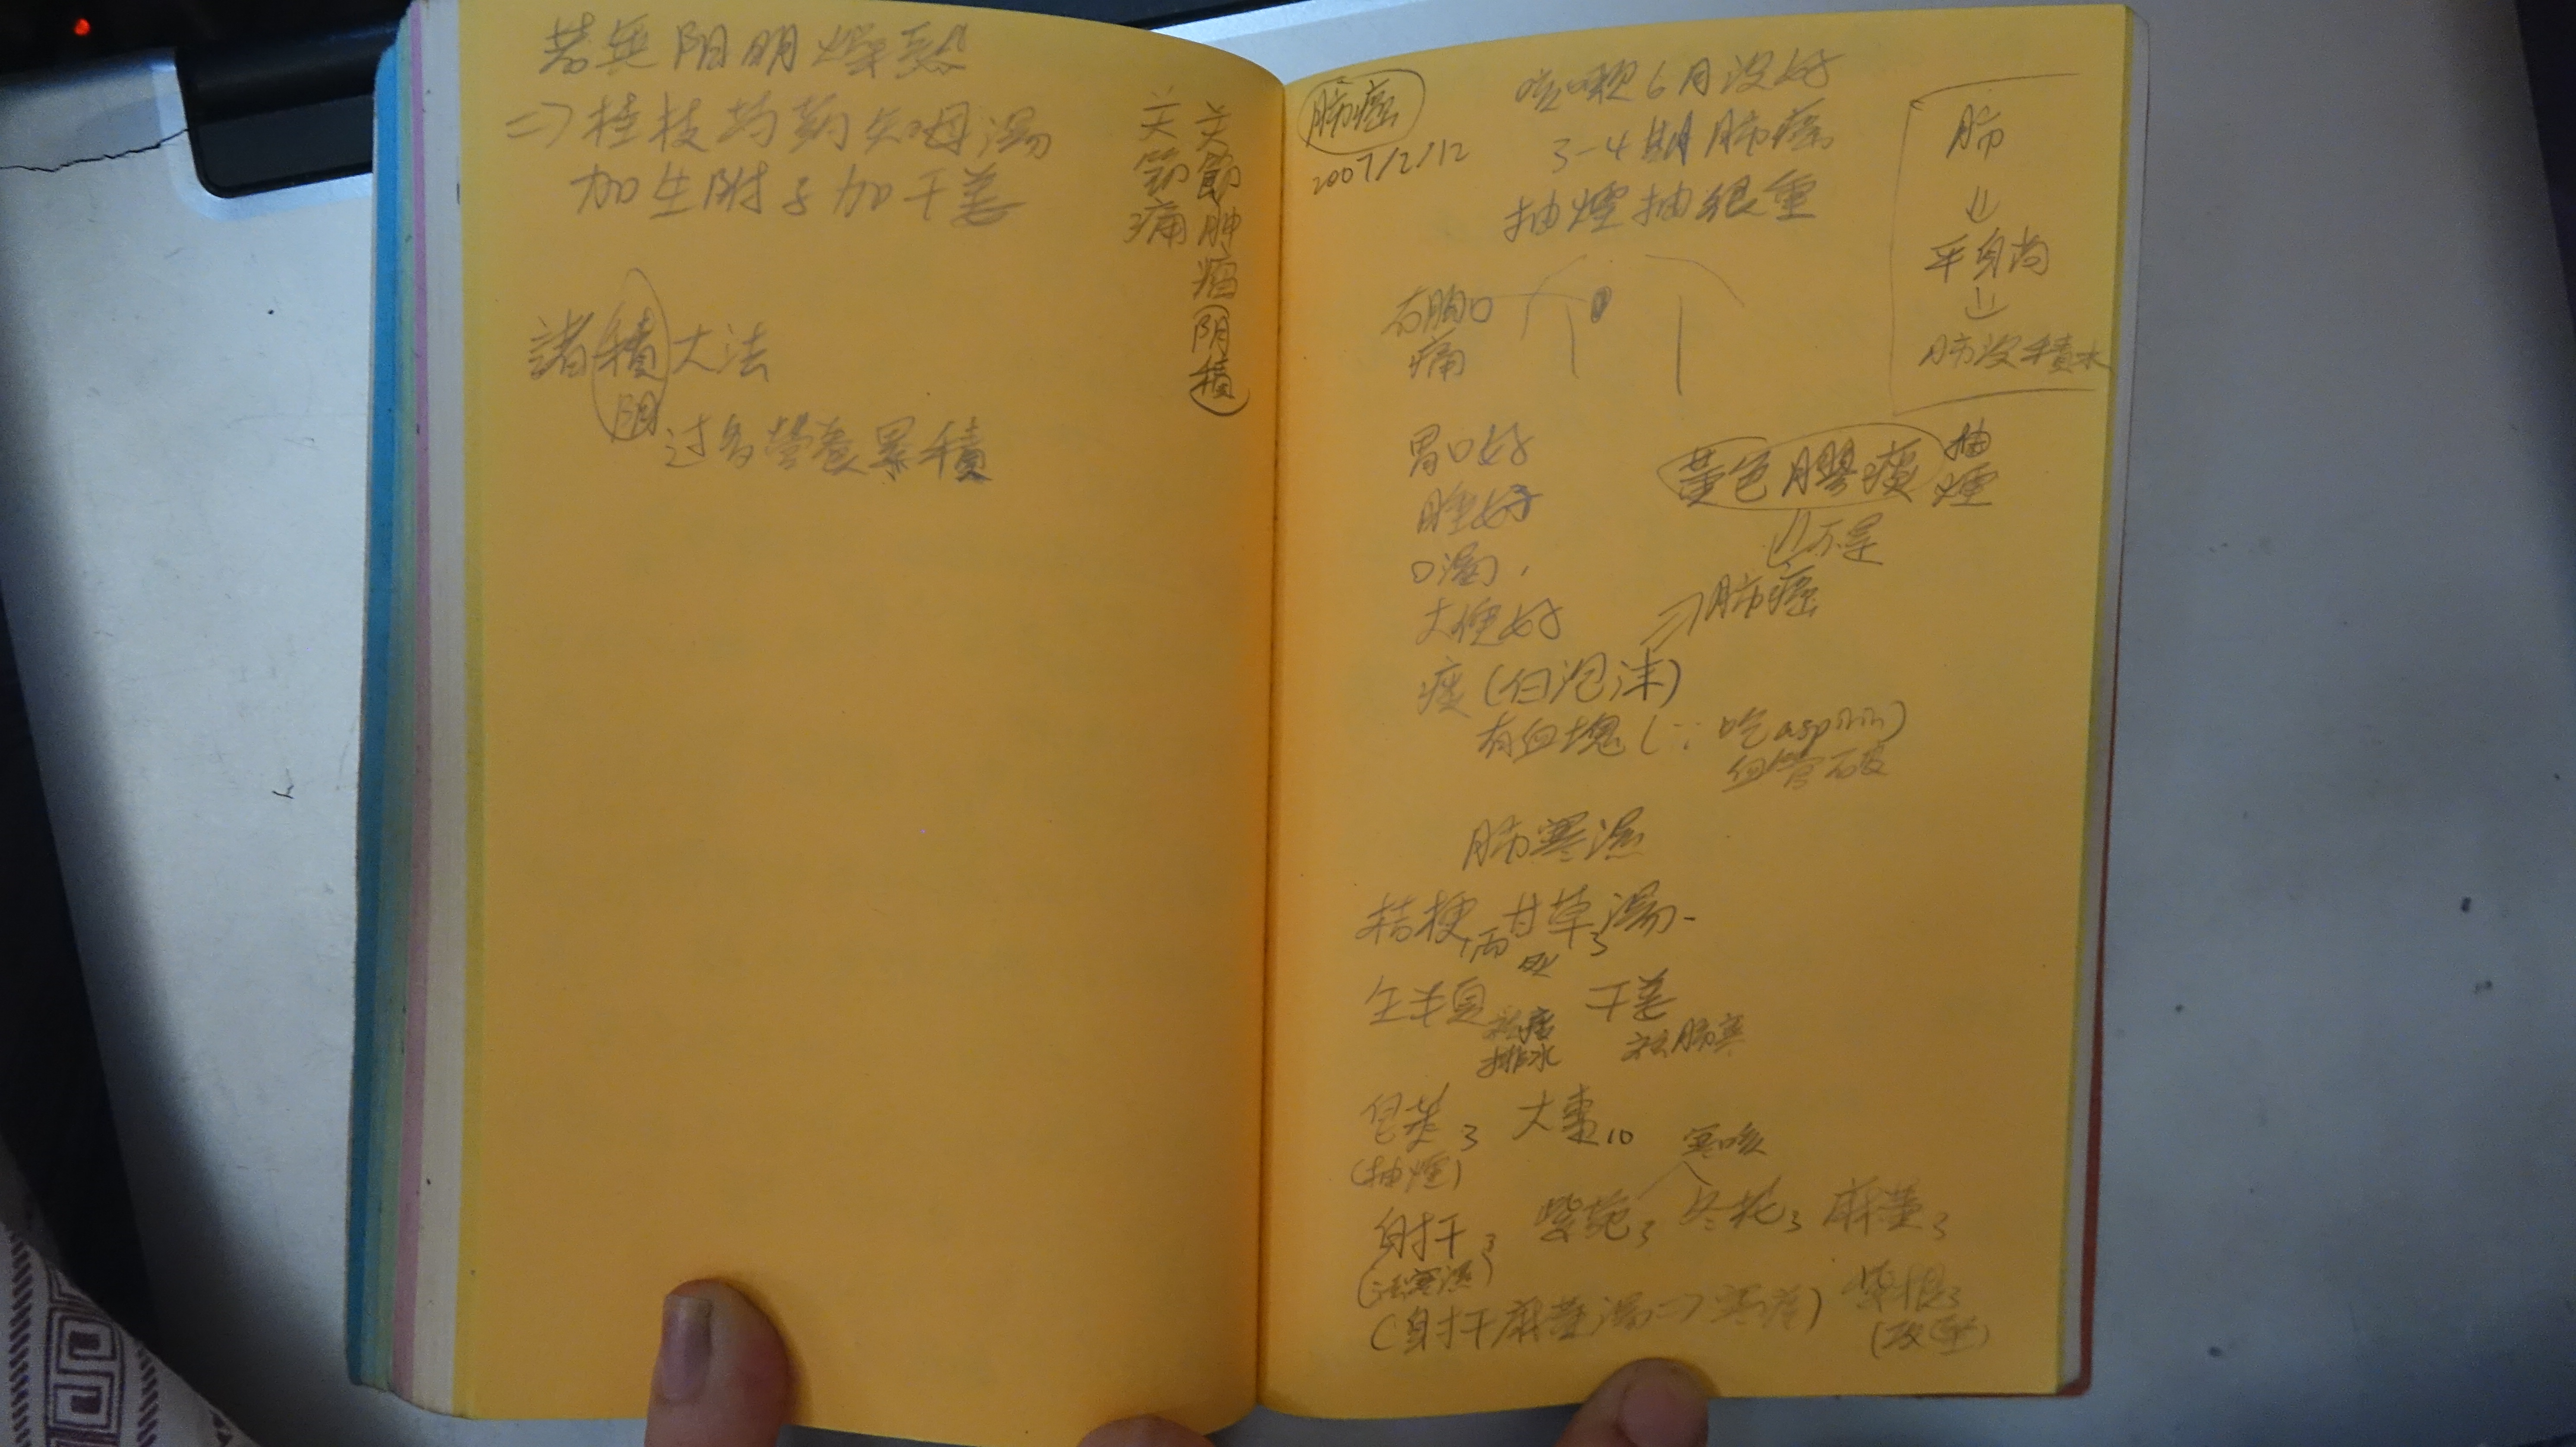 若無阴明燥熱
=> 桂枝芍葯知母湯
加生附子加干姜
关節肿瘤(阴積)
关節痛
諸積大法
阴
过多营养累積
肺癌
2007/2/12
咳嗽6月没好
3-4期肺癌
抽煙抽很重
肺
⇓
平身尚
⇓
肺没積水
右胸口
痛
胃口好
睡好
口渴,
大便好
黃色膠痰
抽煙
⇓不是
=> 肺癌
痰(白泡沫)
有血塊(∵吃aspirin)
血管破
肺寒濕
桔梗1両甘草3湯-
生半夏 干姜
祛痰
排水
祛肺寒
皂莢3 大棗10
(抽煙)
寒咳
射干3 紫菀3 冬花3 麻黃3
(去寒濕)
(射干麻黃湯=>寒)